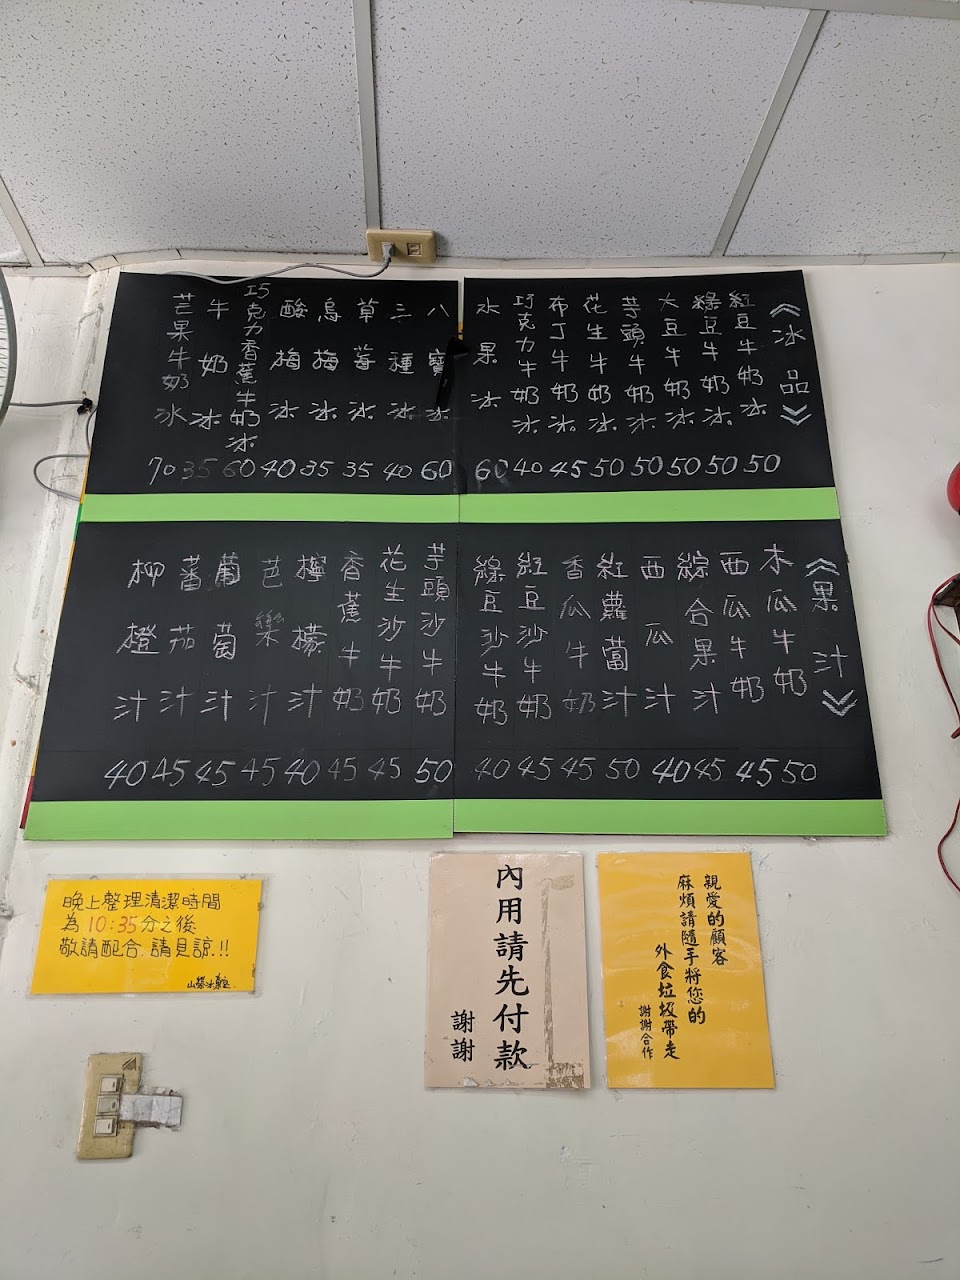 《冰品》
紅豆牛奶冰 50
綠豆牛奶冰 50
大豆牛奶冰 50
芋頭牛奶冰 50
花生牛奶冰 50
布丁牛奶冰 45
巧克力牛奶冰 40
水果冰 60
八寶冰 60
三種冰 40
草莓冰 35
烏梅冰 35
酸梅冰 40
巧克力香蕉牛奶冰 60
牛奶冰 35
芒果牛奶冰 70
《果汁》
木瓜牛奶 50
西瓜牛奶 45
綜合果汁 45
西瓜汁 40
紅蘿蔔汁 50
香瓜牛奶 45
紅豆沙牛奶 45
綠豆沙牛奶 40
芋頭沙牛奶 50
花生沙牛奶 45
香蕉牛奶 45
檸檬汁 40
芭樂汁 45
葡萄汁 45
蕃茄汁 45
柳橙汁 40
晚上整理清潔時間
為10:35分之後
敬請配合 請見諒!!
內用請先付款
謝謝
親愛的顧客
麻煩請隨手將您的
外食垃圾帶走
謝謝合作